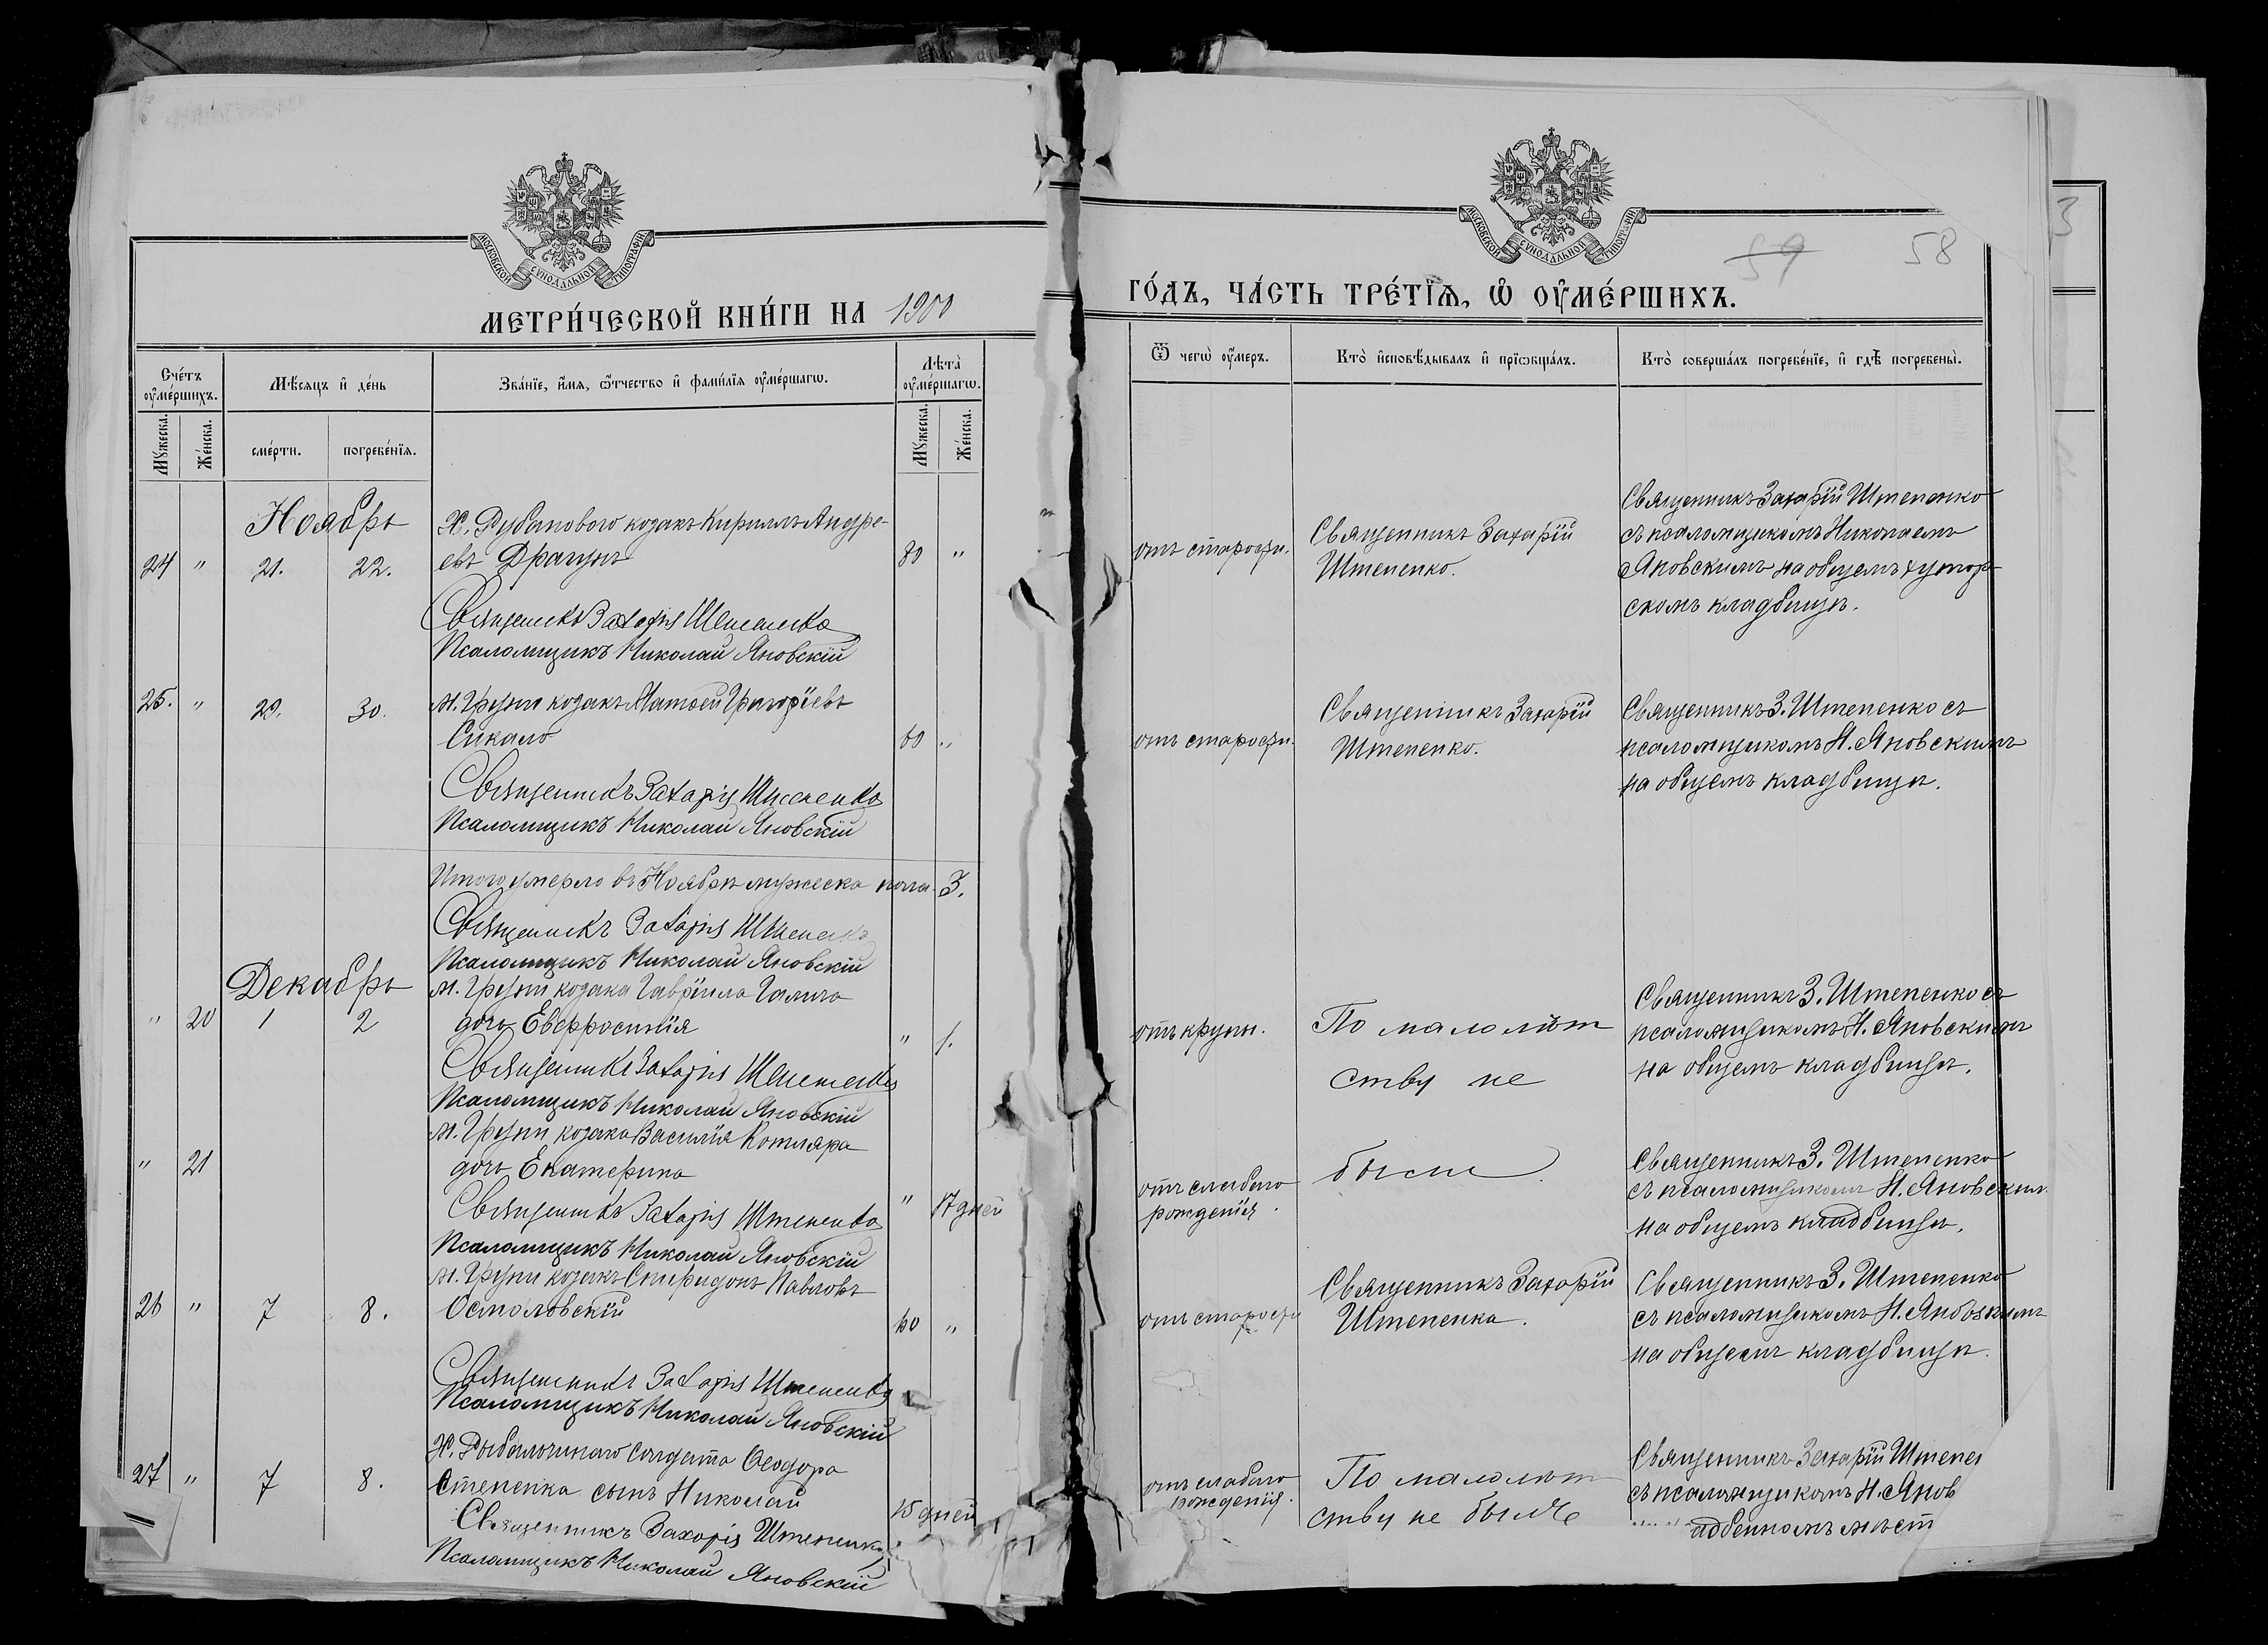 МОСКОВСКОЙ СѴНОДАЛЬНОЙ ТИПОГРАФІИ
МЕТРИ́ЧЕСКОЙ КНИ́ГИ НА 1900
Сче́тъ ᲂумершихъ.
Мѣ́сяцъ и де́нь
Зва́нїе, и́мя, ѻ҆́тчество и фами́лїя ᲂуме́ршагѡ.
Лѣта̀ ᲂуме́ршагѡ.
Мꙋжеска.
Же́нска.
сме́рти.
погребе́нїя.
Мꙋжеска.
Же́нска.
Ноябрь
Х. Рубановаго козакъ Кириллъ Андре-
24 " 21. 22. евъ Драгунъ 80 "
Священникъ Захарій Штепенко
Псаломщикъ Николай Яновскій
25. " 29. 30. м. Груни козакъ Матѳей Григоріевъ
Сикало 60 "
Священникъ Захарій Штепенко
Псаломщикъ Николай Яновскій
Итого умерло въ Ноябрѣ мужеска пола 3.
Священникъ Захарій Штепенко
Псаломщикъ Николай Яновскій
Декабрь
м. Груни козака Гавріила Галича
" 20 1 2 дочь Евфросинія " 1.
Священникъ Захарій Штепенко
Псаломщикъ Николай Яновскій
м. Груни козака Василія Котляра
" 21 дочь Екатерина " 17 дней
Священникъ Захарій Штепенко
Псаломщикъ Николай Яновскій
м. Груни козакъ Спиридонъ Павловъ
26 " 7 8. Осмоловскій 60 "
Священникъ Захарій Штепенко
Псаломщикъ Николай Яновскій
Х. солдата Ѳеодора
27 " 7 8. Степенка сынъ Николай 15 дней
Священникъ Захарій Штепенко
Псаломщикъ Николай Яновскій
МОСКОВСКОЙ СѴНОДАЛЬНОЙ ТИПОГРАФІИ
59 58
3
ГО́ДЪ, ЧА́СТЬ ТРЕ́ТЇѦ, Ѡ҆ ОУМЕ́РШИХЪ.
Ѿ чегѡ̀ ᲂу́меръ.
Кто̀ и҆сповѣ́дывалъ и҆ прїѡбща́лъ.
Кто̀ соверша́лъ погребе́нїе, и҆ гдѣ̀ погребены̀.
отъ старости.
Священникъ Захарій
Штепенко.
Священникъ Захарій Штепенко
съ псаломщикомъ Николаемъ
Яновскимъ на общемъ хутор-
скомъ кладбищѣ.
отъ старости.
Священникъ Захарій
Штепенко.
Священникъ З. Штепенко съ
псаломщикомъ Н. Яновскимъ
на общемъ кладбищѣ.
отъ крупы.
По малолѣт
ству не
были
Священникъ З. Штепенко съ
псаломщикомъ Н. Яновскимъ
на общемъ кладбищѣ.
отъ слабаго
рожденія.
Священникъ З. Штепенко
съ псаломщикомъ Н. Яновским
на общемъ кладбищѣ.
отъ старости
Священникъ Захарій
Штепенка.
Священникъ З. Штепенко
съ псаломщикомъ Н. Яновскимъ
на общемъ кладбищѣ.
отъ слабаго
рожденія.
По малолѣт
ству не былъ
Священникъ Захарій Штепе
съ псаломщикомъ Н. Янов
адбенномъ мѣст